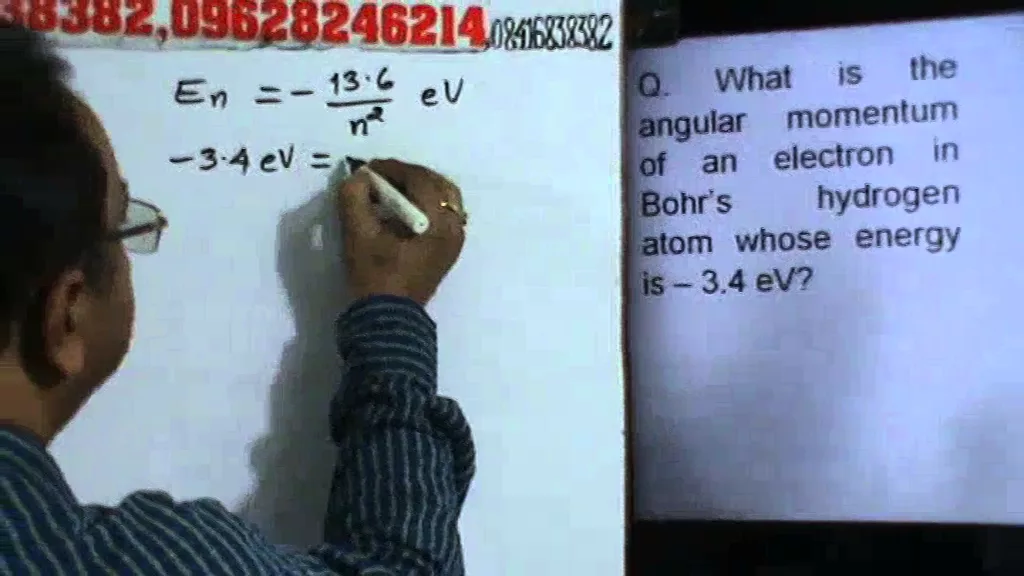 38382,09628246214,08416838382
En = - 13.6/n² eV
-3.4 eV =
Q. What is the
angular momentum
of an electron in
Bohr's hydrogen
atom whose energy
is – 3.4 eV?